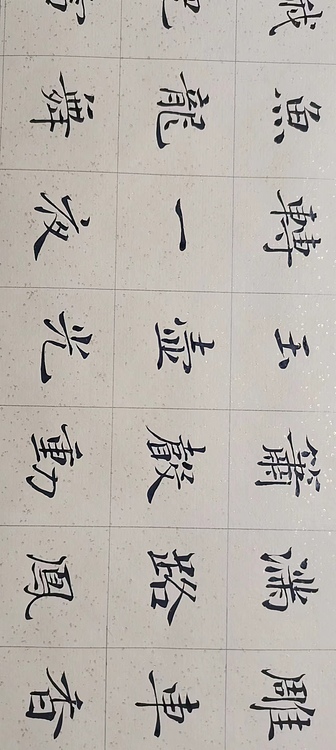 雕車香
滿路鳳
簫聲動
玉壺光
轉一夜
魚龍舞